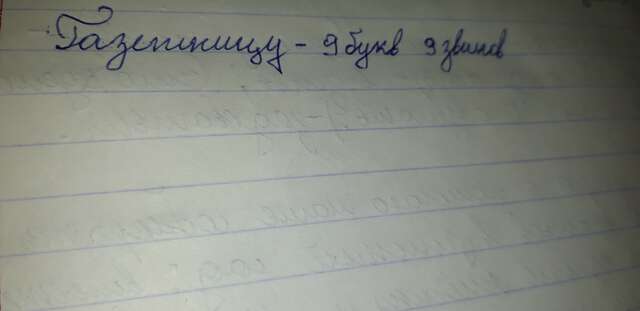 Газетницу - 9 букв 9 звуков